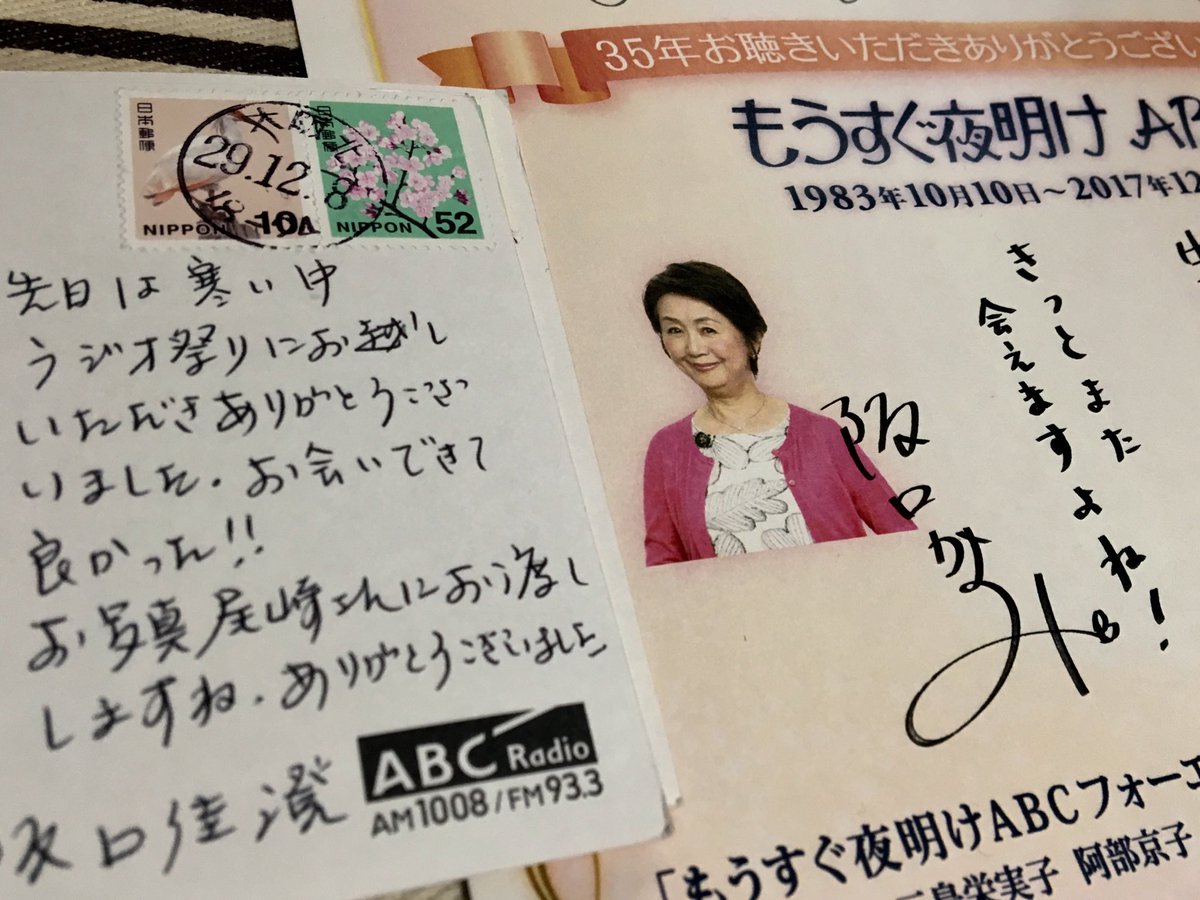 日本郵便
NIPPON 10
日本郵便
NIPPON 52
29.12.8
先日は寒い中
ラジオ祭りにお越し
いただきありがとうござ
いました。お会いできて
良かった!!
お写真尾崎さんにお渡し
しますね。ありがとうございました
阪口佳澄
ABC Radio
AM1008/FM93.3
35年お聴きいただきありがとうござい
もうすぐ夜明け AB
1983年10月10日~2017年12
きっとまた
会えますよね!
阪口
「もうすぐ夜明けABCフォーエ
栄実子 阿部京子